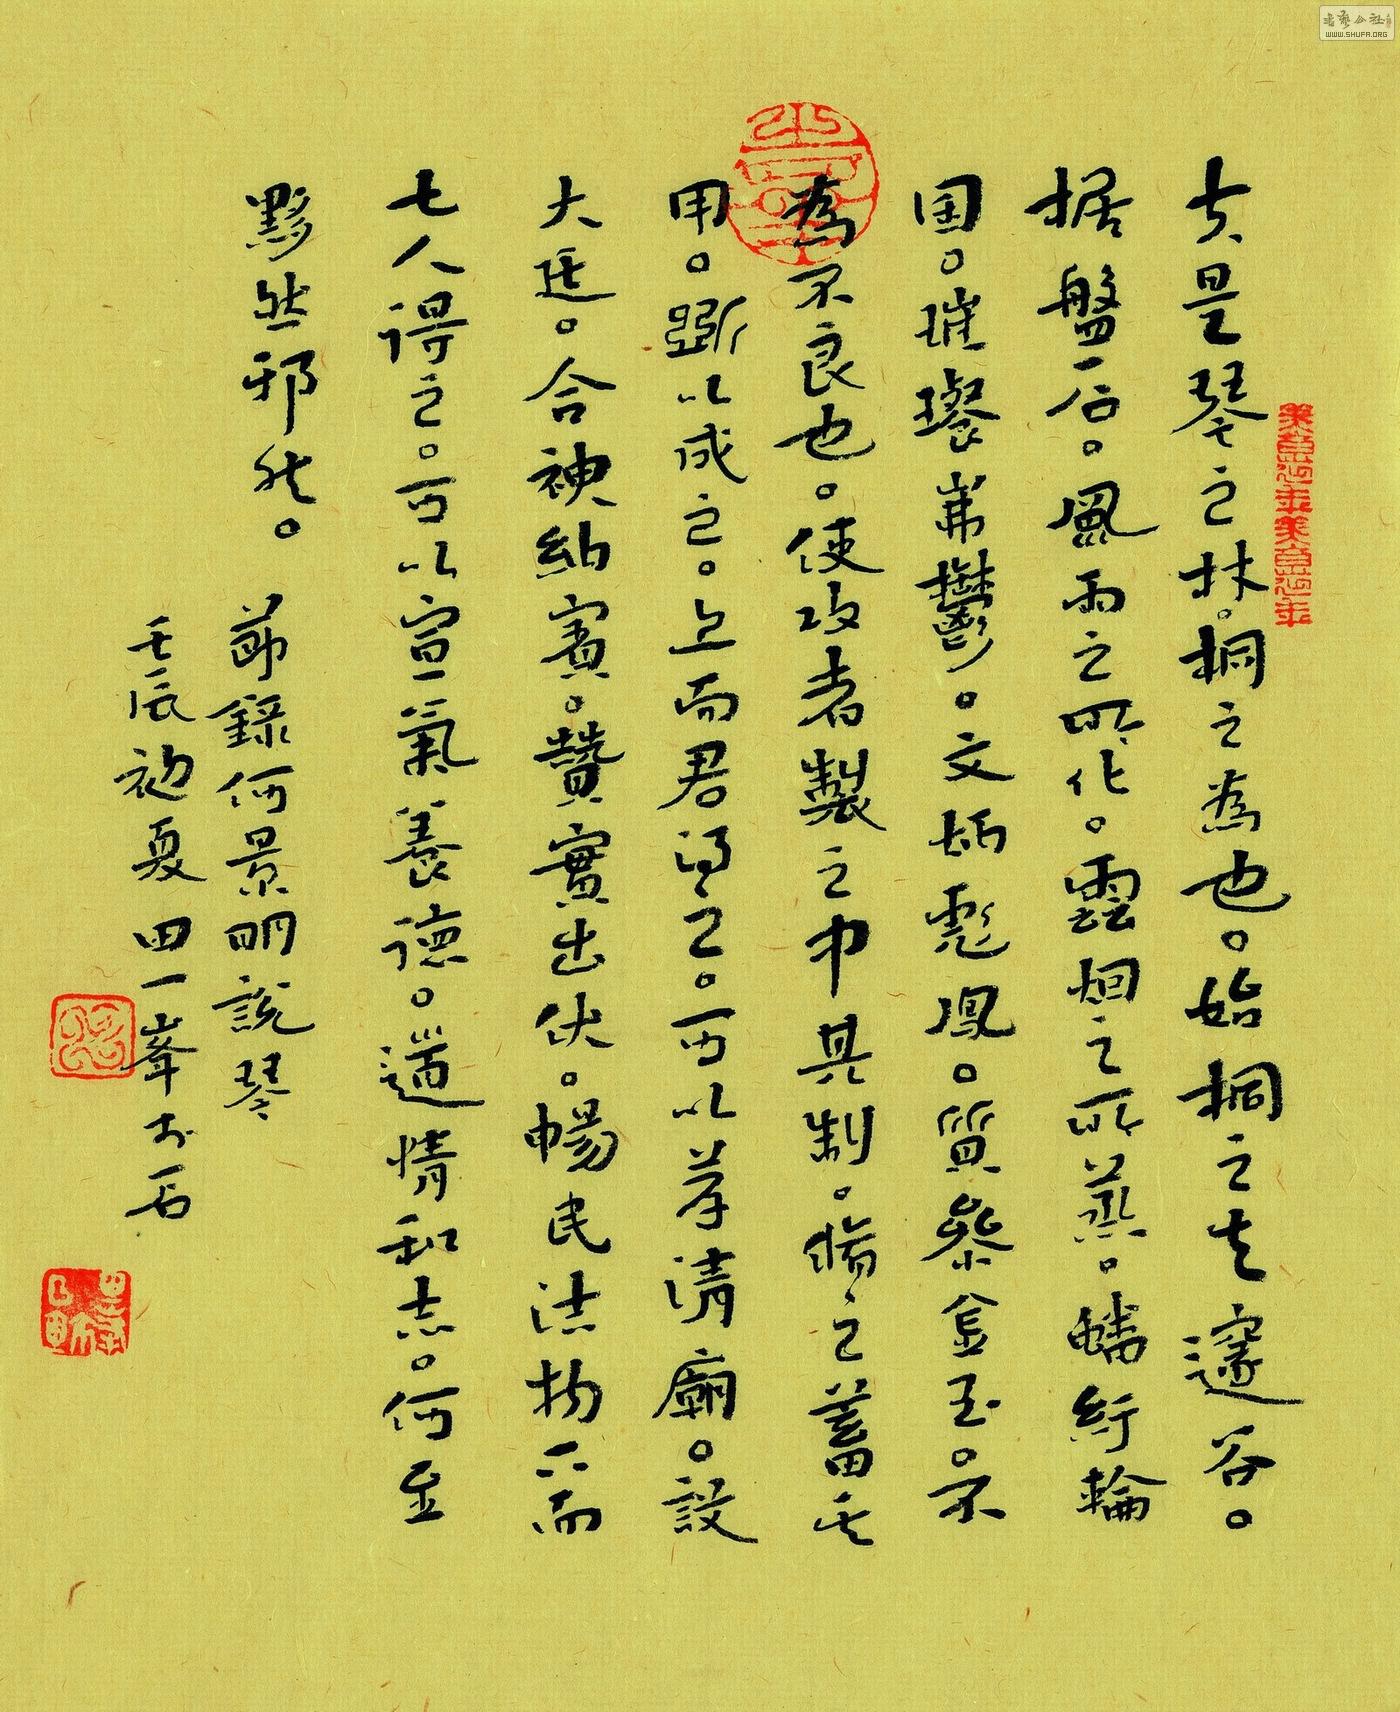 夫是琴之材。桐之為也。始桐之生邃谷。
据盤石。風雨之所化。雲烟之所蒸。蟠紆輪
囷。璀璨岪鬱。文炳彪鳳。質參金玉。不
為不良也。使攻者製之中其制。脩之蓄其
用。斲以成之。上而君得之。可以荐清廟。設
大廷。合神納賓。贊實出伏。暢民潔物。下而
士人得之。可以宣氣養德。道情和志。何至
黟然邪然。
節錄何景明說琴
壬辰初夏田一峯书
WWW.SHUFA.ORG